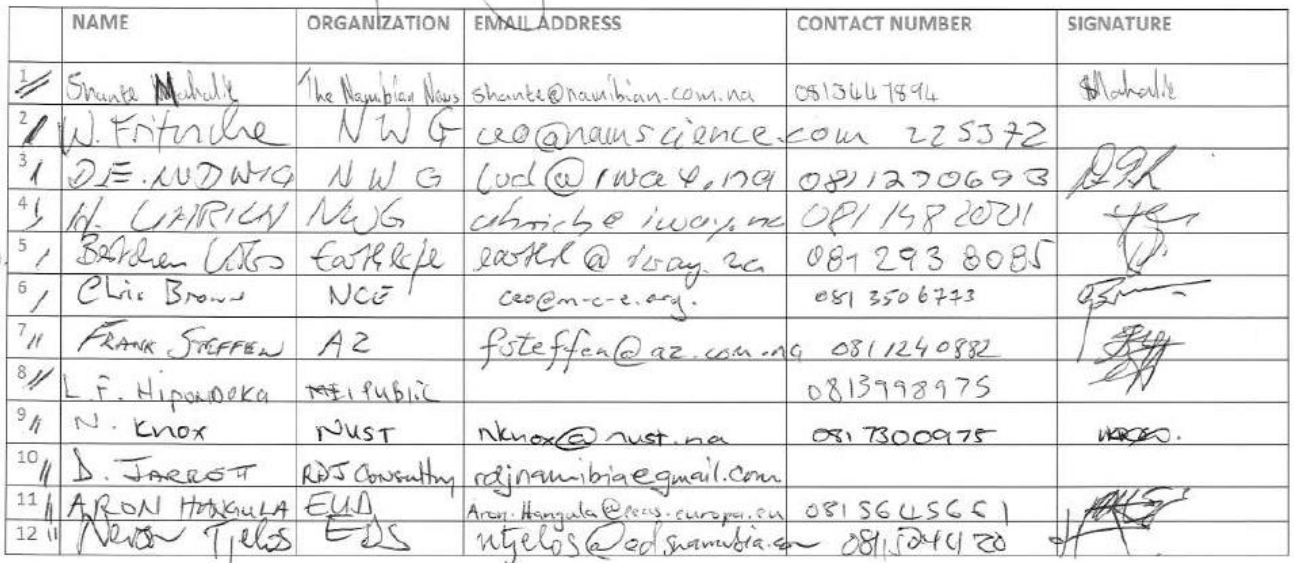 NAME ORGANIZATION EMAIL ADDRESS CONTACT NUMBER SIGNATURE
1 Shante Mahalie The Namibian News shante@namibian.com.na 0813447894 SMahalie
2 W. Fritzsche NWG ceo@namscience.com 225372
3 D.E. LUDWIG NWG lud@iway.na 0811290693
4 H. UHRICH NWG uhrich@iway.na
5 Bertchen Earthlife earthl@iway.na 081 293 8085
6 Chris Brown NCE ceo@n-c-e.org. 081 3506773
7 FRANK STEFFEN AZ fsteffen@az.com.na 0811240882
8 L.F. Hipondoka Public 0813998975
9 N. Knox NUST nknox@nust.na 081 7300975
10 D. JARRETT RDJ Consulting rdjnamibia@gmail.com
11 ARON HANGULA EUD Aron.Hangula@eeas.europa.eu 0815645661
12 Tjelos EDS ntjelos@edsnamibia.com